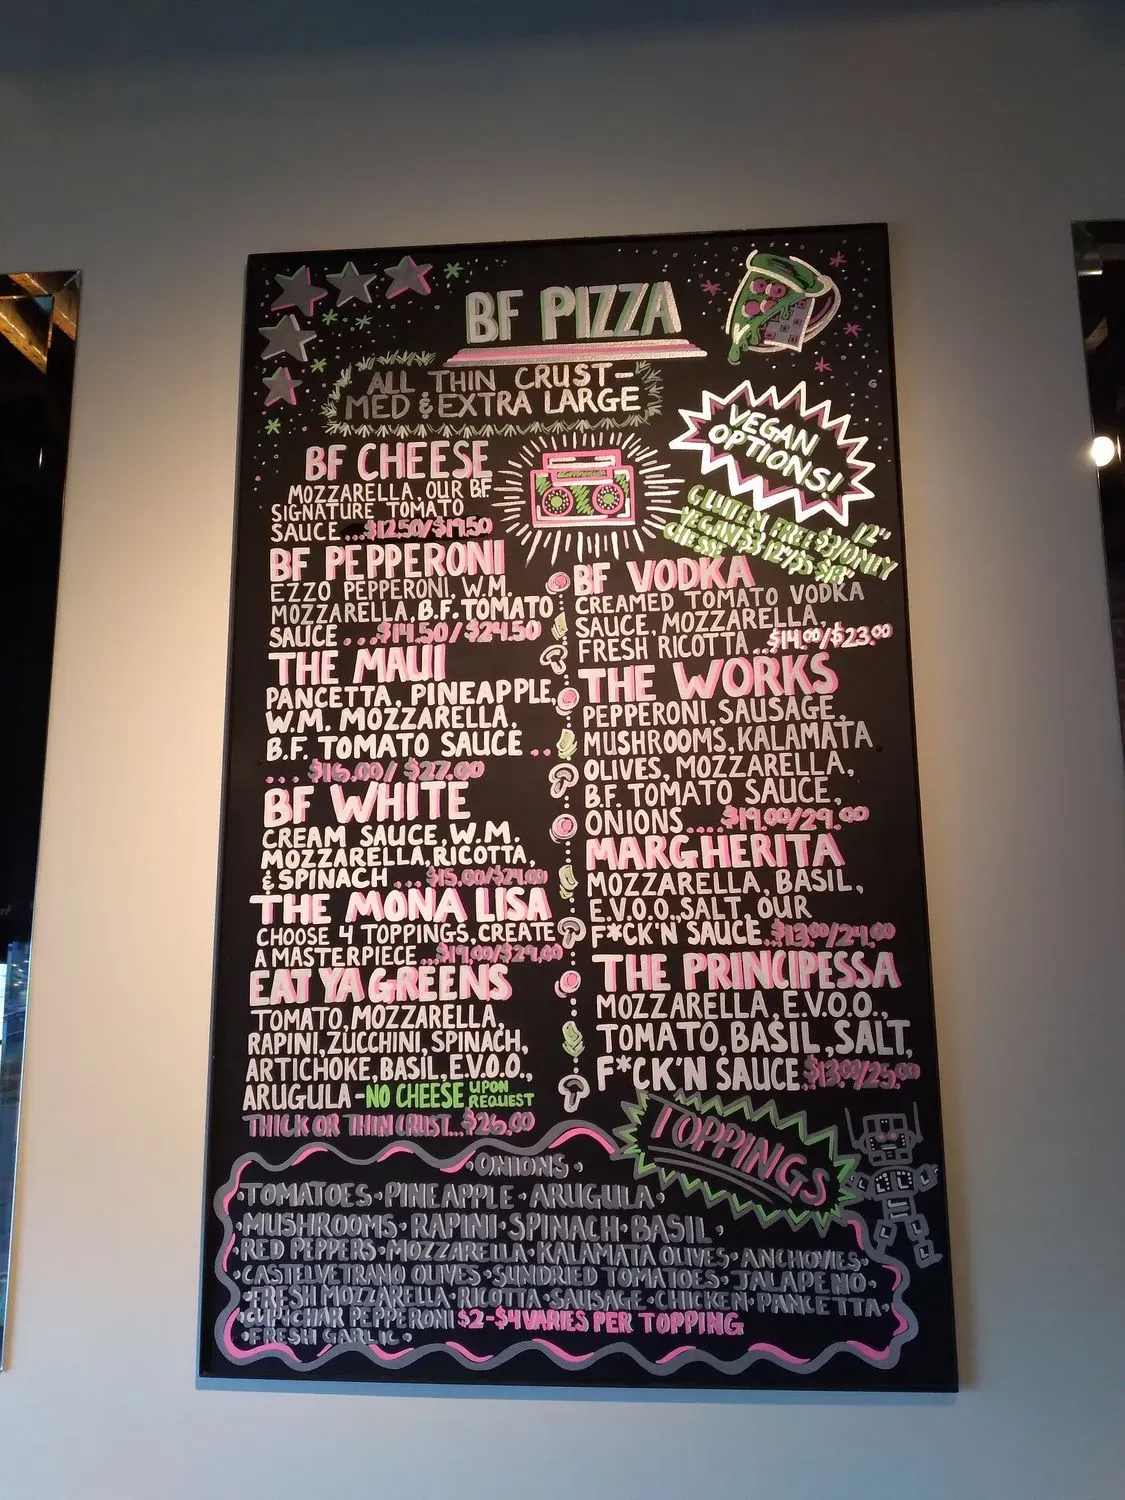 BF PIZZA
ALL THIN CRUST-
MED & EXTRA LARGE
VEGAN
OPTIONS!
GLUTEN FREE $3/ONLY 12"
VEGAN $3 12"/$5 18"
CHEESE
BF CHEESE
MOZZARELLA, OUR BF
SIGNATURE TOMATO
SAUCE...$12.50/$19.50
BF PEPPERONI
EZZO PEPPERONI, W.M.
MOZZARELLA, B.F. TOMATO
SAUCE...$14.50/$24.50
THE MAUI
PANCETTA, PINEAPPLE,
W.M. MOZZARELLA,
B.F. TOMATO SAUCE ..
... $16.00/ $27.00
BF WHITE
CREAM SAUCE, W.M.
MOZZARELLA, RICOTTA,
& SPINACH ... $15.00/$24.00
THE MONA LISA
CHOOSE 4 TOPPINGS, CREATE
A MASTERPIECE...$19.00/$29.00
EAT YA GREENS
TOMATO, MOZZARELLA,
RAPINI, ZUCCHINI, SPINACH,
ARTICHOKE, BASIL, E.V.O.O.,
ARUGULA-NO CHEESE UPON REQUEST
THICK OR THIN CRUST...$26.00
BF VODKA
CREAMED TOMATO VODKA
SAUCE, MOZZARELLA,
FRESH RICOTTA...$14.00/$23.00
THE WORKS
PEPPERONI, SAUSAGE,
MUSHROOMS, KALAMATA
OLIVES, MOZZARELLA,
B.F. TOMATO SAUCE,
ONIONS....$19.00/29.00
MARGHERITA
MOZZARELLA, BASIL,
E.V.O.O., SALT, OUR
F*CK'N SAUCE...$13.00/24.00
THE PRINCIPESSA
MOZZARELLA, E.V.O.O.,
TOMATO, BASIL, SALT,
F*CK'N SAUCE $13.00/25.00
TOPPINGS
•ONIONS•
•TOMATOES•PINEAPPLE•ARUGULA•
•MUSHROOMS•RAPINI•SPINACH•BASIL•
•RED PEPPERS•MOZZARELLA•KALAMATA OLIVES•ANCHOVIES•
•CASTELVETRANO OLIVES•SUNDRIED TOMATOES•JALAPENO•
•FRESH MOZZARELLA•RICOTTA•SAUSAGE•CHICKEN•PANCETTA•
•CUP-CHAR PEPPERONI $2-$4 VARIES PER TOPPING
•FRESH GARLIC•